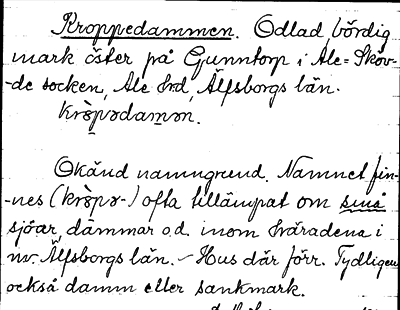 Kroppedammen. Odlad bördig
mark öster på Gunntorp i Ale-Sköv-
-de socken, Ale hd, Älfsborgs län.
kròpədamən.
Okänd namngrund. Namnet fin-
-nes (kròpə-) ofta tillämpat om små
sjöar, dammar o.d. inom häradena i
nv. Älfsborgs län. - Hus där förr. Tydligen
också damm eller sankmark.